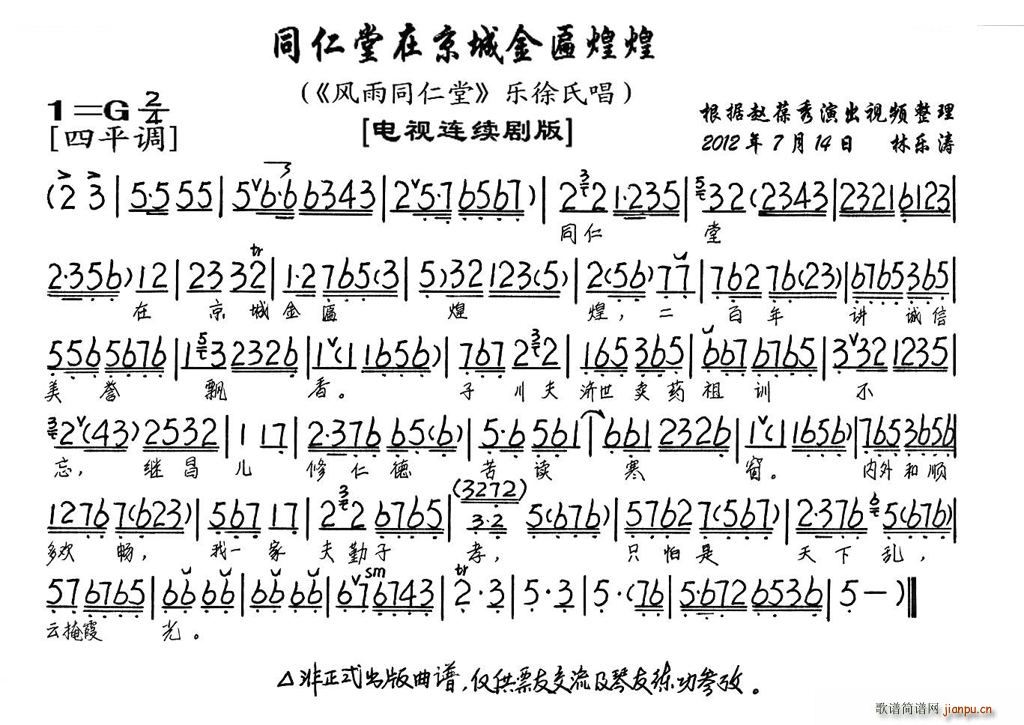 同仁堂在京城金匾煌煌
(《风雨同仁堂》乐徐氏唱)
1=G 2/4
[四平调]
[电视连续剧版]
根据赵葆秀演出视频整理
2012年7月14日 林乐涛
(2 3 | 5·5 55 | 5 6·6 6343 | 2 5·7 6567) | 2 3 2 1·235 | 5 32 (2343 | 2321 6123 |
同仁 堂
2·356) 12 | 23 32 | 1·2 765(3 | 5)32 123(5) | 2(56) 77 | 762 76(23) | 6765 365 |
在 京 城 金 匾 煌 煌, 二 百 年 讲 诚信
556 5676 | 1 5 3 2326 | 1(1 1656) | 767 2 3 2 | 165 365 | 667 6765 | 3 32 1235 |
美 誉 飘 香。 子 川 夫 济世 卖 药 祖 训 不
3 2(43) 2532 | 1 17 | 2·376 65(6) | 5·6 561 | 661 2326 | 1(1 1656) | 765 3656 |
忘, 继 昌 儿 修 仁 德 苦 读 寒 窗。 内外 和 顺
1276 7(623) | 567 17 | 2 3 2 6765 | (3272) 3·2 5(676) | 5762 7(567) | 2·376 6 5(676) |
多欢 畅, 我一 家 夫 勤 子 孝, 只 怕 是 天 下 乱,
57 6765 | 66 66 | 66 66 | 67 6743 | 2·3 | 5·3 | 5·(76 | 5·672 6536 | 5 —) ‖
云掩霞 光。
△非正式出版曲谱,仅供票友交流及琴友练功参考。
歌谱简谱网
jianpu.cn